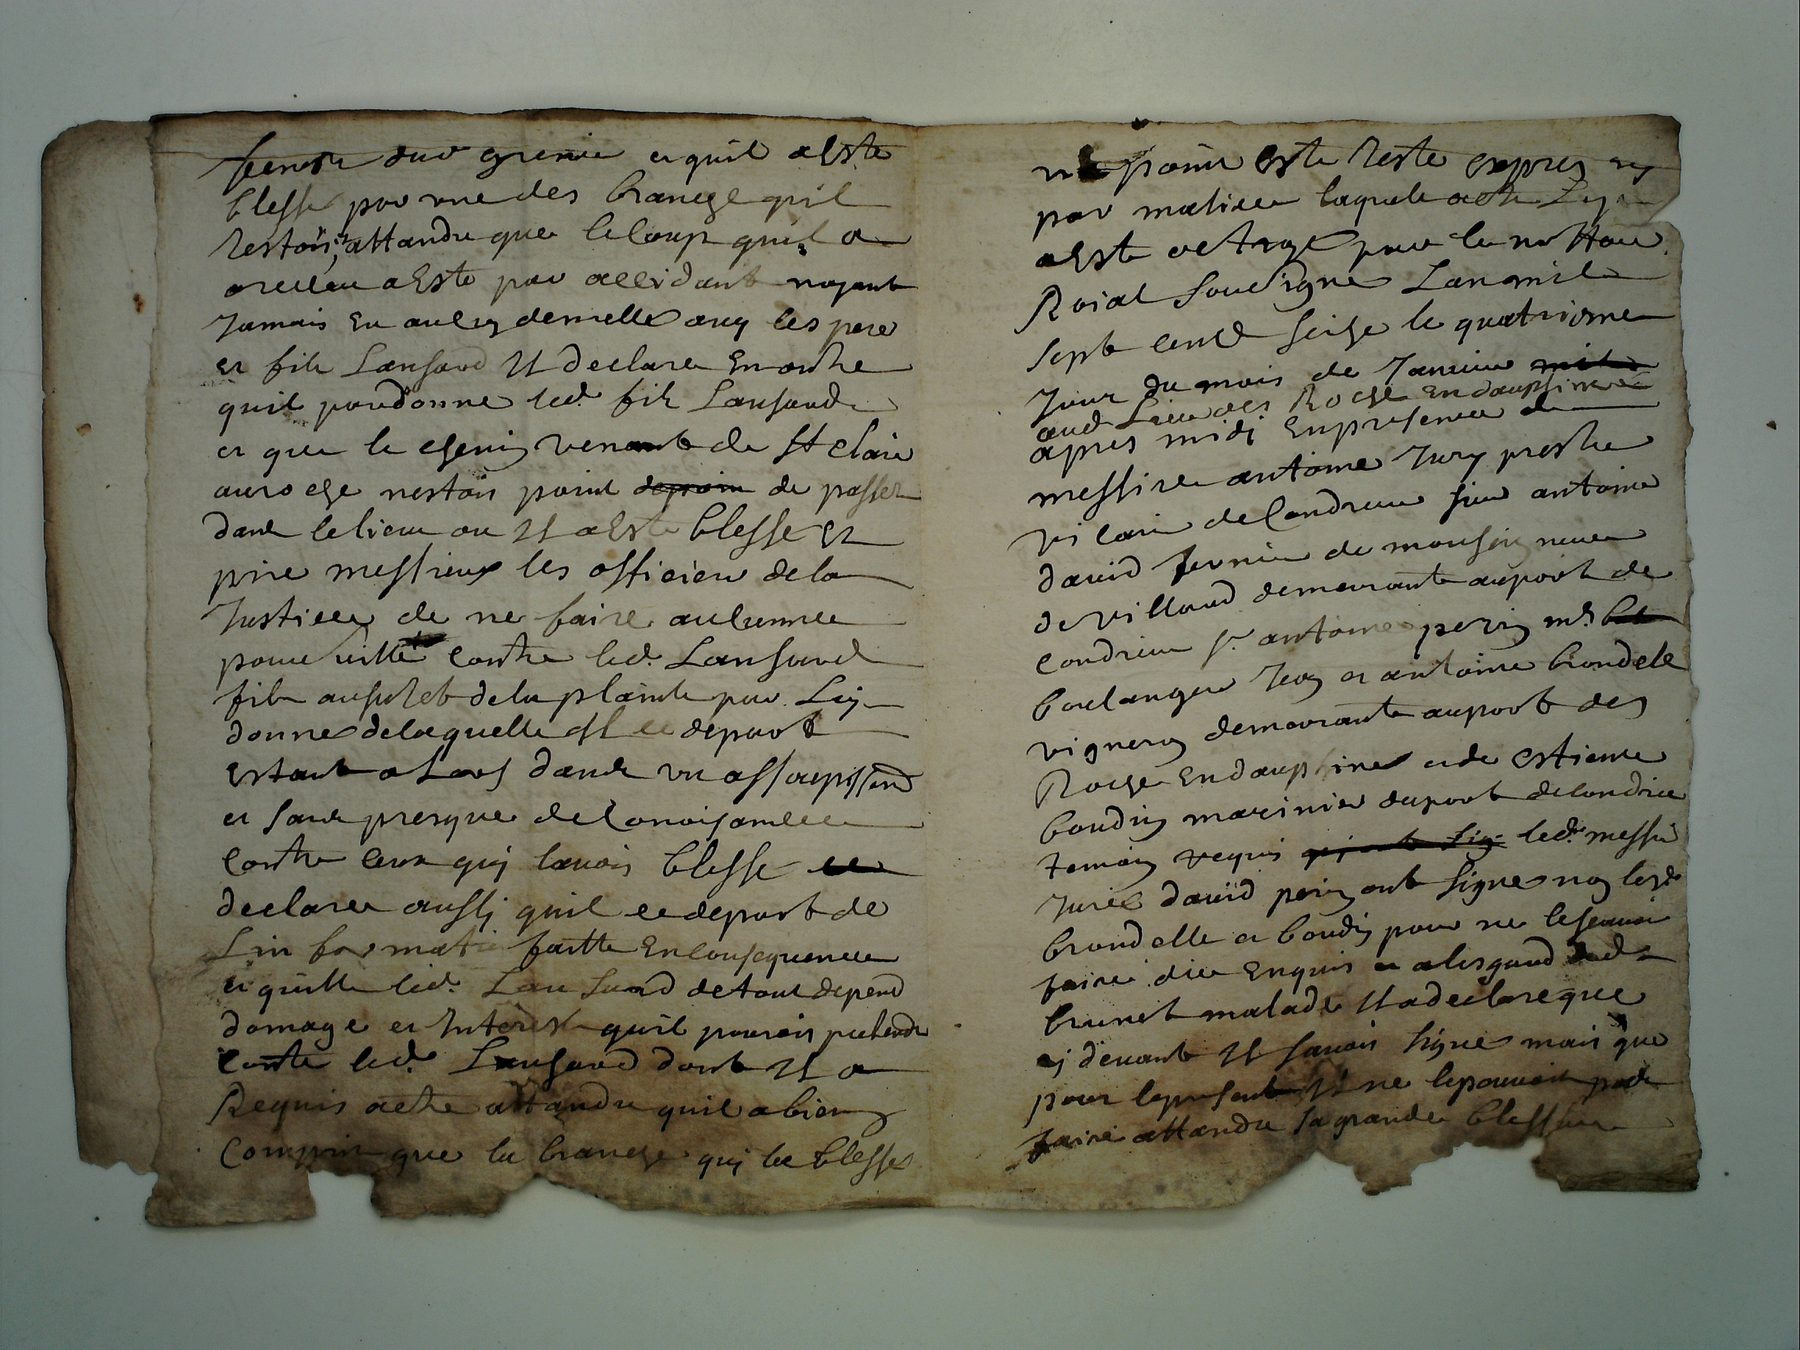 fenestre dud grenier et quil a este
blesse par une des branche quil
restoit, attandu que le coup quil a
receu a este par accidant nayant
Jamais eu aulcun demelle avec les pere
et fils Lansard Il declare En oultre
quil pardonne led. fils Lansard
et que le chemin venant de st claire
au roche nestoit point de passer
dans le lieu ou Il a este blesse Et
prie messieurs les officiers de la
Justice de ne faire aulcunne
poursuitte contre led. Lansard
fils au sujet de la plainte par Luy
donnee de laquelle Il ce depart
estant alors dans un assoupissement
et sans presque de Conoisance
contre ceux quy lavoit blesse
declare aussy quil ce depart de
Linformation faitte En consequence
et quitte led. Lansard de tout depend
domage et Interest quil pouroit pretendre
contre led. Lansard dont Il a
Requis acte attandu quil a bien
Comprins que la branche quy la blesse
na point este jette expres ny
par malice laquelle acte Luy
a este octroye par le nottaire
Roial soubsigne Lan mil
sept cent seize le quatriesme
Jour du mois de Janvier
aud. Lieu des Roche En dauphine
apres midi En presence de
messire antoine Jury prestre
vicaire de Condrieu sieur antoine
david fermier de monseigneur
de villard demeurants au port de
Condrieu sr. antoine perin md.
boulanger Jean et antoine brondelle
vigneron demeurants au port des
Roche En dauphine et de estienne
boudin marinier du port de Condrieu
temoins requis led. messire
Jurie david perin ont signe non lesd.
brondelle et boudin pour ne le scavoir
faire de ce Enquis et a lesgard dud.
brunet malade Il a declare que
cy devant Il savoit signer mais que
pour le present Il ne le pouvoit pas
faire attandu sa grande blessure